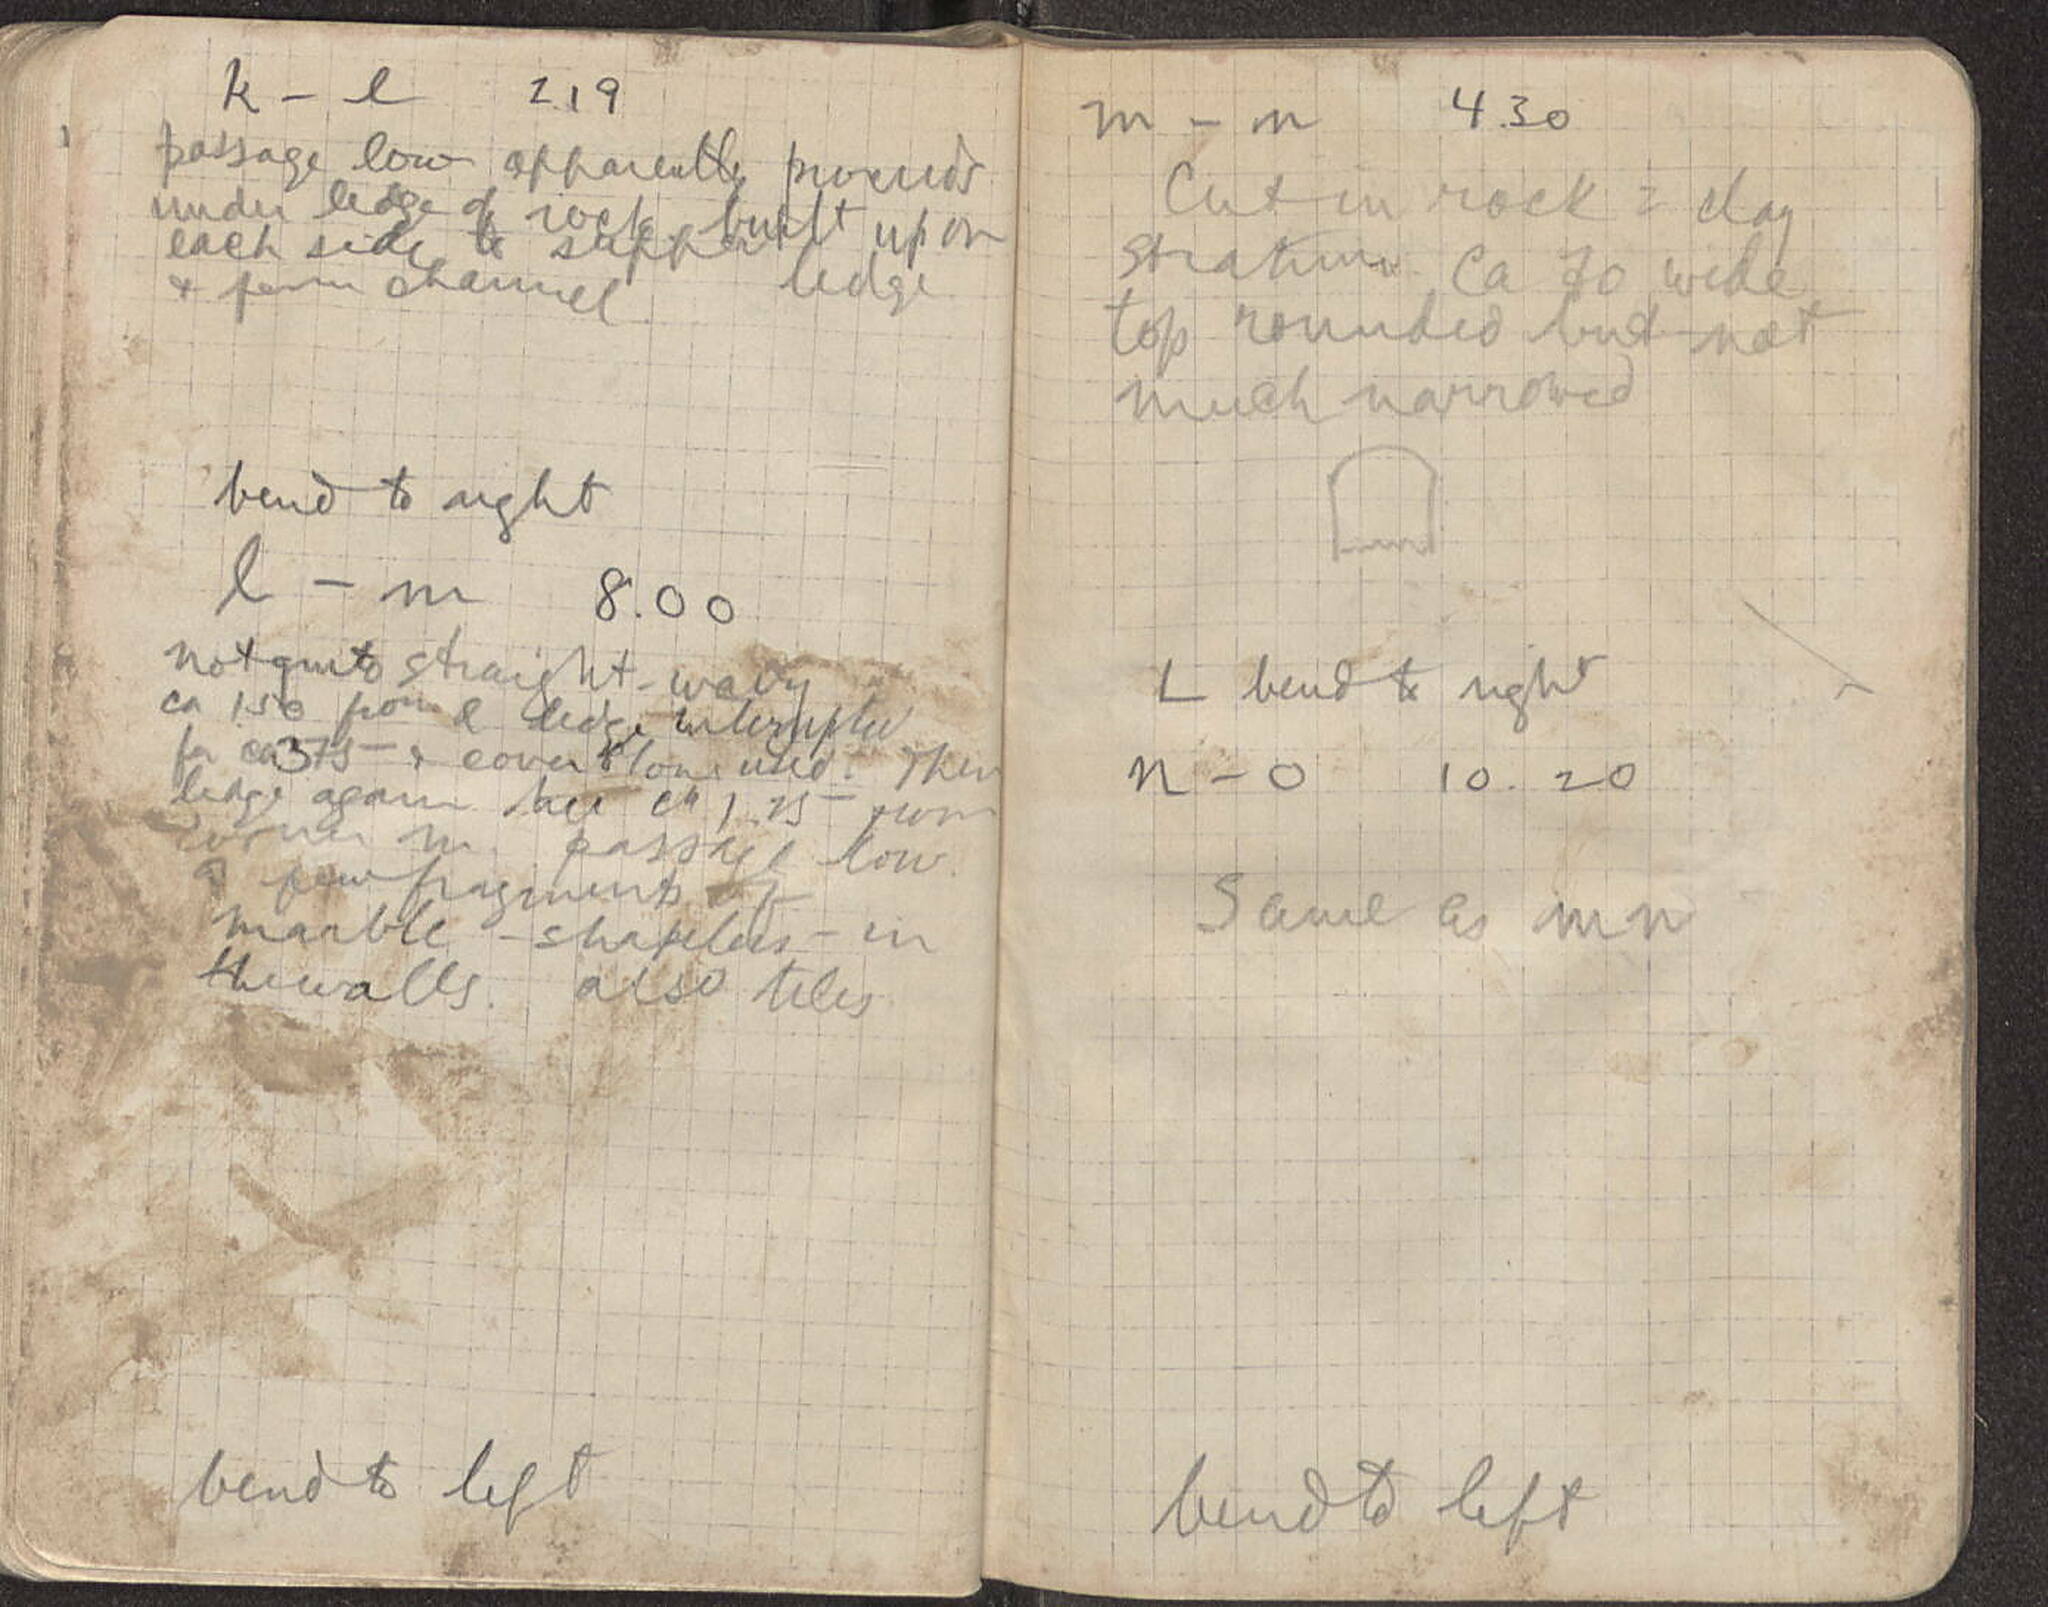 k – l 2.19
passage low apparently proceeds
under ledge of rock, built up on
each side to support ledge
+ form channel
bend to right
l – m 8.00
not quite straight – wavy
ca 1.50 from l ledge interrupted
for ca 3.75 + cover slabs used. Then
ledge again till ca 1.25 from
corner m. passage low.
a few fragments of
marble – shapeless – in
the walls. also tiles
bend to left
m – n 4.30
Cut in rock = clay
stratum. Ca 70 wide
top rounded but not
much narrowed
L bend to right
n – o 10.20
Same as mn
bend to left